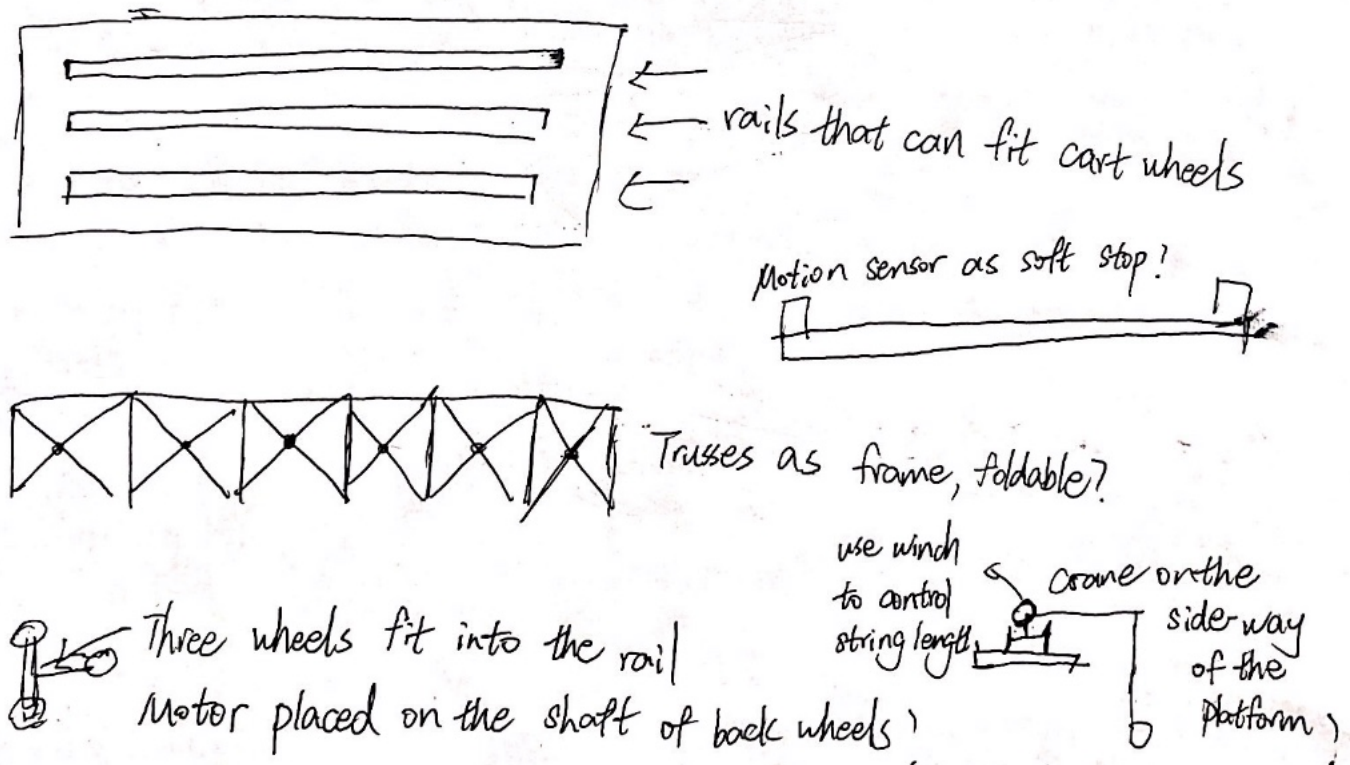 rails that can fit cart wheels
Motion sensor as soft stop?
Trusses as frame, foldable?
use winch
to control
string length
crane on the
side way
of the
platform
Three wheels fit into the rail
Motor placed on the shaft of back wheels